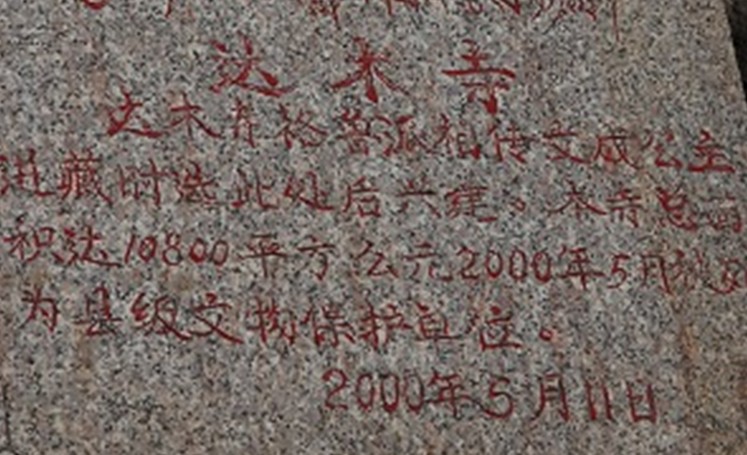 达木寺
达木寺格鲁派相传文成公主
进藏时选此处后兴建。本寺总面
积达10800平方公元2000年5月被
为县级文物保护单位。
2000年5月11日